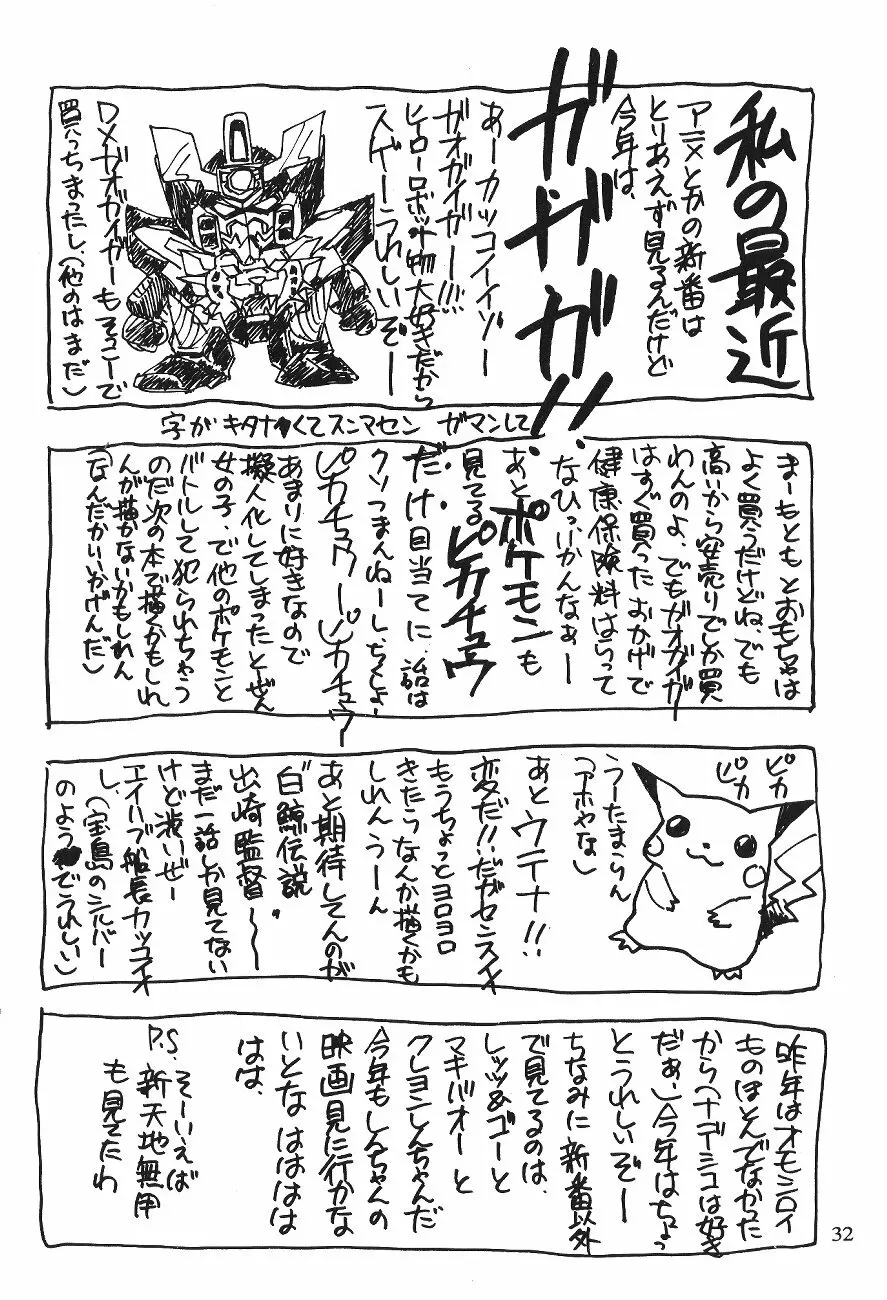 私の最近
アニメとかの新番は
とりあえず見るんだけど
今年は、
ガガガ!!
あーカッコイイゾー
ガオガイガー!!!
ヒーローロボット物大好きだから
スゲーうれしいぞー
DXガオガイガーもそっこーで
買っちまったし、(他のはまだ)
字がキタナくてスンマセン ガマンして
まーもともとおもちゃは
よく買うだけどね、でも
高いから安売りでしか買
わんのよ、でもガオガイガー
はすぐ買ったおかげで
健康保険料はらって
なひ、いかんなぁー
あとポケモンも
見てるピカチュウ
だけ目当てに、話は
クソつまんねーし、ちくしょー
ピカチュウーピカチュウー
あまりに好きなので
擬人化してしまったとぜん
女の子、で他のポケモンと
バトルして犯られちゃう
のだ次の本で描くかもしれ
んが描かないかもしれん
(なんだかいいかげんだ)
ピカ
ピカ
うーたまらん
(アホやな)
あとウテナ!!
変だ!!だがセンスイイ
もうちょっとヨロヨロ
きたらなんか描くかも
しれんうーん
あと期待してんのが
"白鯨伝説"
出崎監督〜
まだ一話しか見てない
けど渋いぜー
エイハブ船長カッコイイ
し、(宝島のシルバー
のようでうれしい)
昨年はオモシロイ
ものほとんでなかった
から(ナデシコは好き
だぁー)今年はちょっ
とうれしいぞー
ちなみに新番以外
で見てるのは、
レッツ&ゴーと
マキバオーと
クレヨンしんちゃんだ
今年もしんちゃんの
映画見に行かな
いとな はははは
はは、
P.S. そーいえば
新天地無用
も見てたわ
32